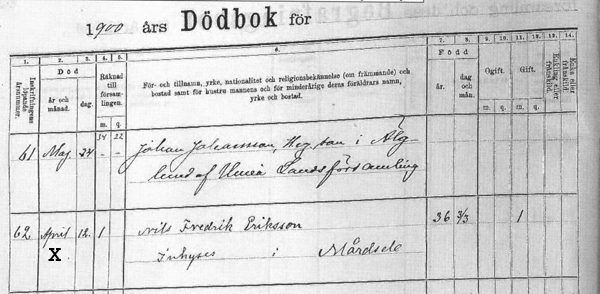 1900 års Dödbok för
1. 2. 3. 4. 5. 6. 7. 8. 9. 10. 11. 12. 13. 14.
Inskrifningens löpande nummer. Död Räknad till församlingen. För- och tillnamn, yrke, nationalitet och religionsbekännelse (om främmande) och bostad samt för hustru mannens och för minderårige deras föräldrars namn, yrke och bostad. Född Ogift. Gift. Enkling eller frånskild. Enka eller frånskild.
år och månad. dag. m. q. år. dag och mån. m. q. m. q.
14 22
61 Maj 24 - - Johan Johansson, Heg. son i Älg-
lund af Umeå Landsförsamling
62 April 12. 1 Nils Fredrik Eriksson 36 3/3 1
X Inhyses i Mårdsele